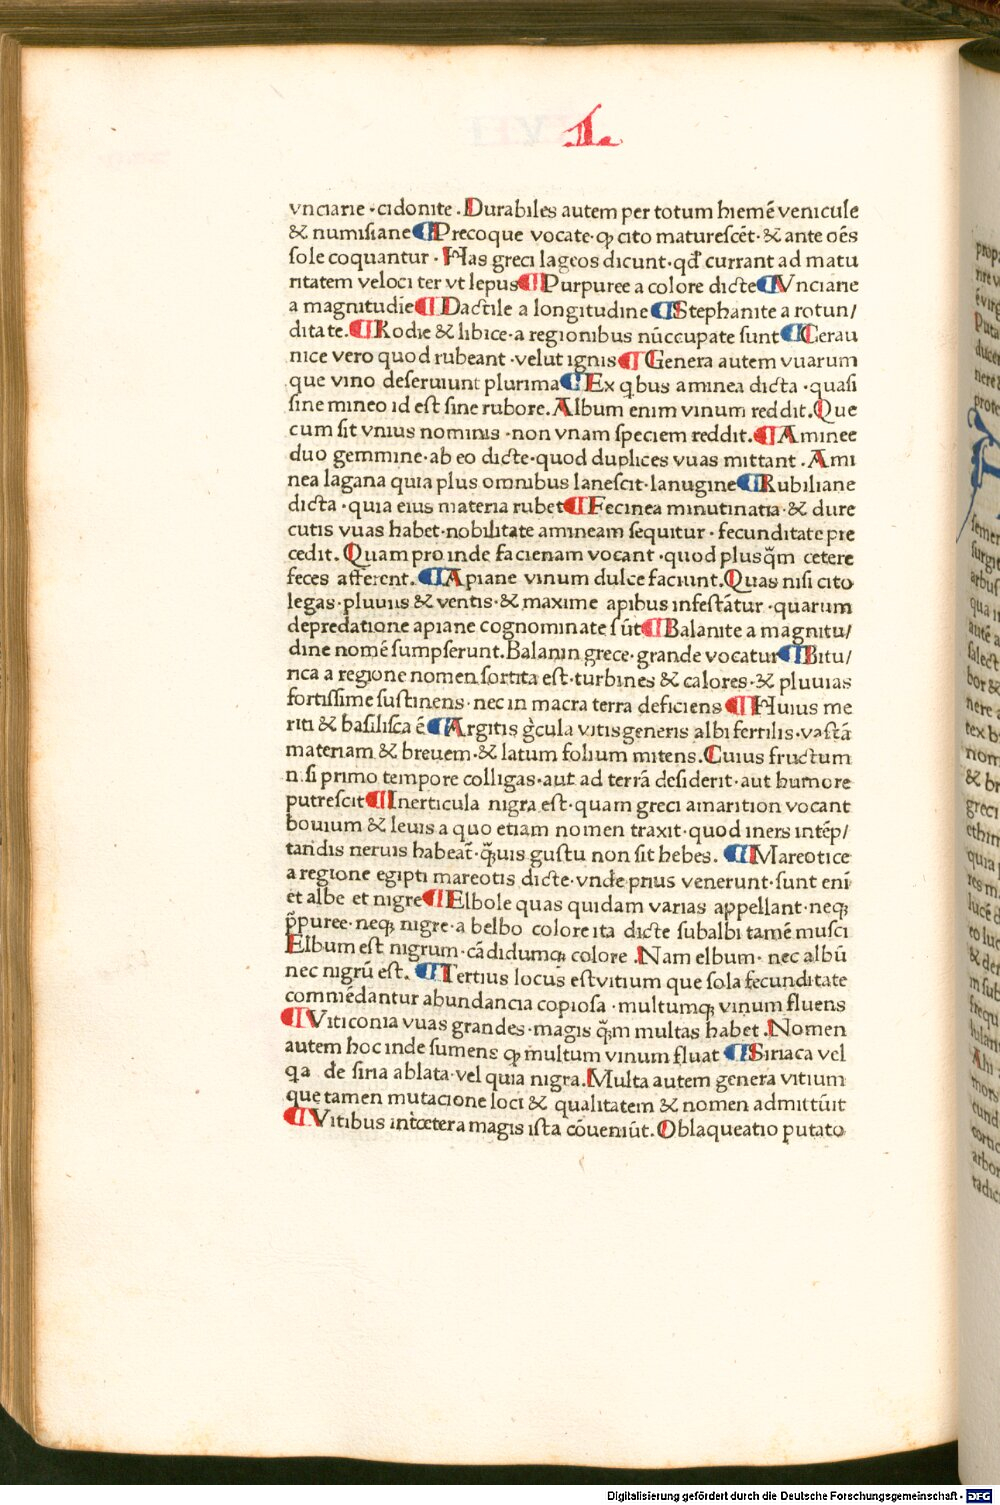 L
vnciarie ·cidonite .Durabiles autem per totum hiemē venicule
& numisiane ¶Precoque vocate·ꝙ cito maturescēt·& ante oēs
sole coquantur · Has greci lageos dicunt·qd̄ currant ad matu
ritatem veloci ter vt lepus ¶Purpuree a colore dicte ¶Vnciane
a magnitudie ¶Dactile a longitudine ¶Stephanite a rotun/
ditate. ¶Rodie & libice·a regionibus nūccupate sunt ¶Cerau
nice vero quod rubeant ·velut ignis ¶Genera autem vuarum
que vino deseruiunt plurima ¶Ex qbus aminea dicta ·quasi
sine mineo id est sine rubore. Album enim vinum reddit. Que
cum sit vnius nominis ·non vnam speciem reddit. ¶Aminee
duo gemmine·ab eo dicte·quod duplices vuas mittant .Ami
nea lagana quia plus omnibus lanescit·lanugine ¶Rubiliane
dicta ·quia eius materia rubet ¶Fecinea minutinatia·& dure
cutis vuas habet·nobilitate amineam sequitur · fecunditate pre
cedit. Quam pro inde facienam vocant ·quod plusq̄m cetere
feces afferent. ¶Apiane vinum dulce faciunt. Quas nisi cito
legas·pluuiis & ventis·& maxime apibus infestātur ·quarum
depredatione apiane cognominate sūt ¶Balanite a magnitu/
dine nomē sumpserunt. Balanin grece·grande vocatur ¶Bitu/
rica a regione nomen sortita est·turbines & calores·& pluuias
fortissime sustinens·nec in macra terra deficiens ¶Huius me
riti & basilisca ē ¶Argitis g̊cula vitis generis albi fertilis·vastā
materiam & breuem·& latum folium mitens. Cuius fructum
n si primo tempore colligas·aut ad terrā desiderit·aut humore
putrescit ¶Inerticula nigra est·quam greci amarition vocant
bouium & leuis a quo etiam nomen traxit·quod iners intēp/
tandis neruis habeat̄·q̄uis gustu non sit hebes. ¶Mareotice
a regione egipti mareotis dicte·vnde prius venerunt·sunt eni
et albe et nigre ¶Elbole quas quidam varias appellant·neqꝫ
p̄puree·neqꝫ nigre·a belbo colore ita dicte subalbi tamē musci
Elbum est nigrum·cādidumqꝫ colore .Nam elbum· nec albū
nec nigrū est. ¶Tertius locus est vitium que sola fecunditate
commēdantur abundancia copiosa ·multumqꝫ vinum fluens
¶Viticonia vuas grandes·magis q̄m multas habet .Nomen
autem hoc inde sumens ꝙ multum vinum fluat ¶Siriaca vel
qa de siria ablata·vel quia nigra. Multa autem genera vitium
que tamen mutacione loci & qualitatem & nomen admittūit
¶Vitibus intcetera magis ista cōueniūt. Oblaqueatio putato
Digitalisierung gefördert durch die Deutsche Forschungsgemeinschaft - DFG